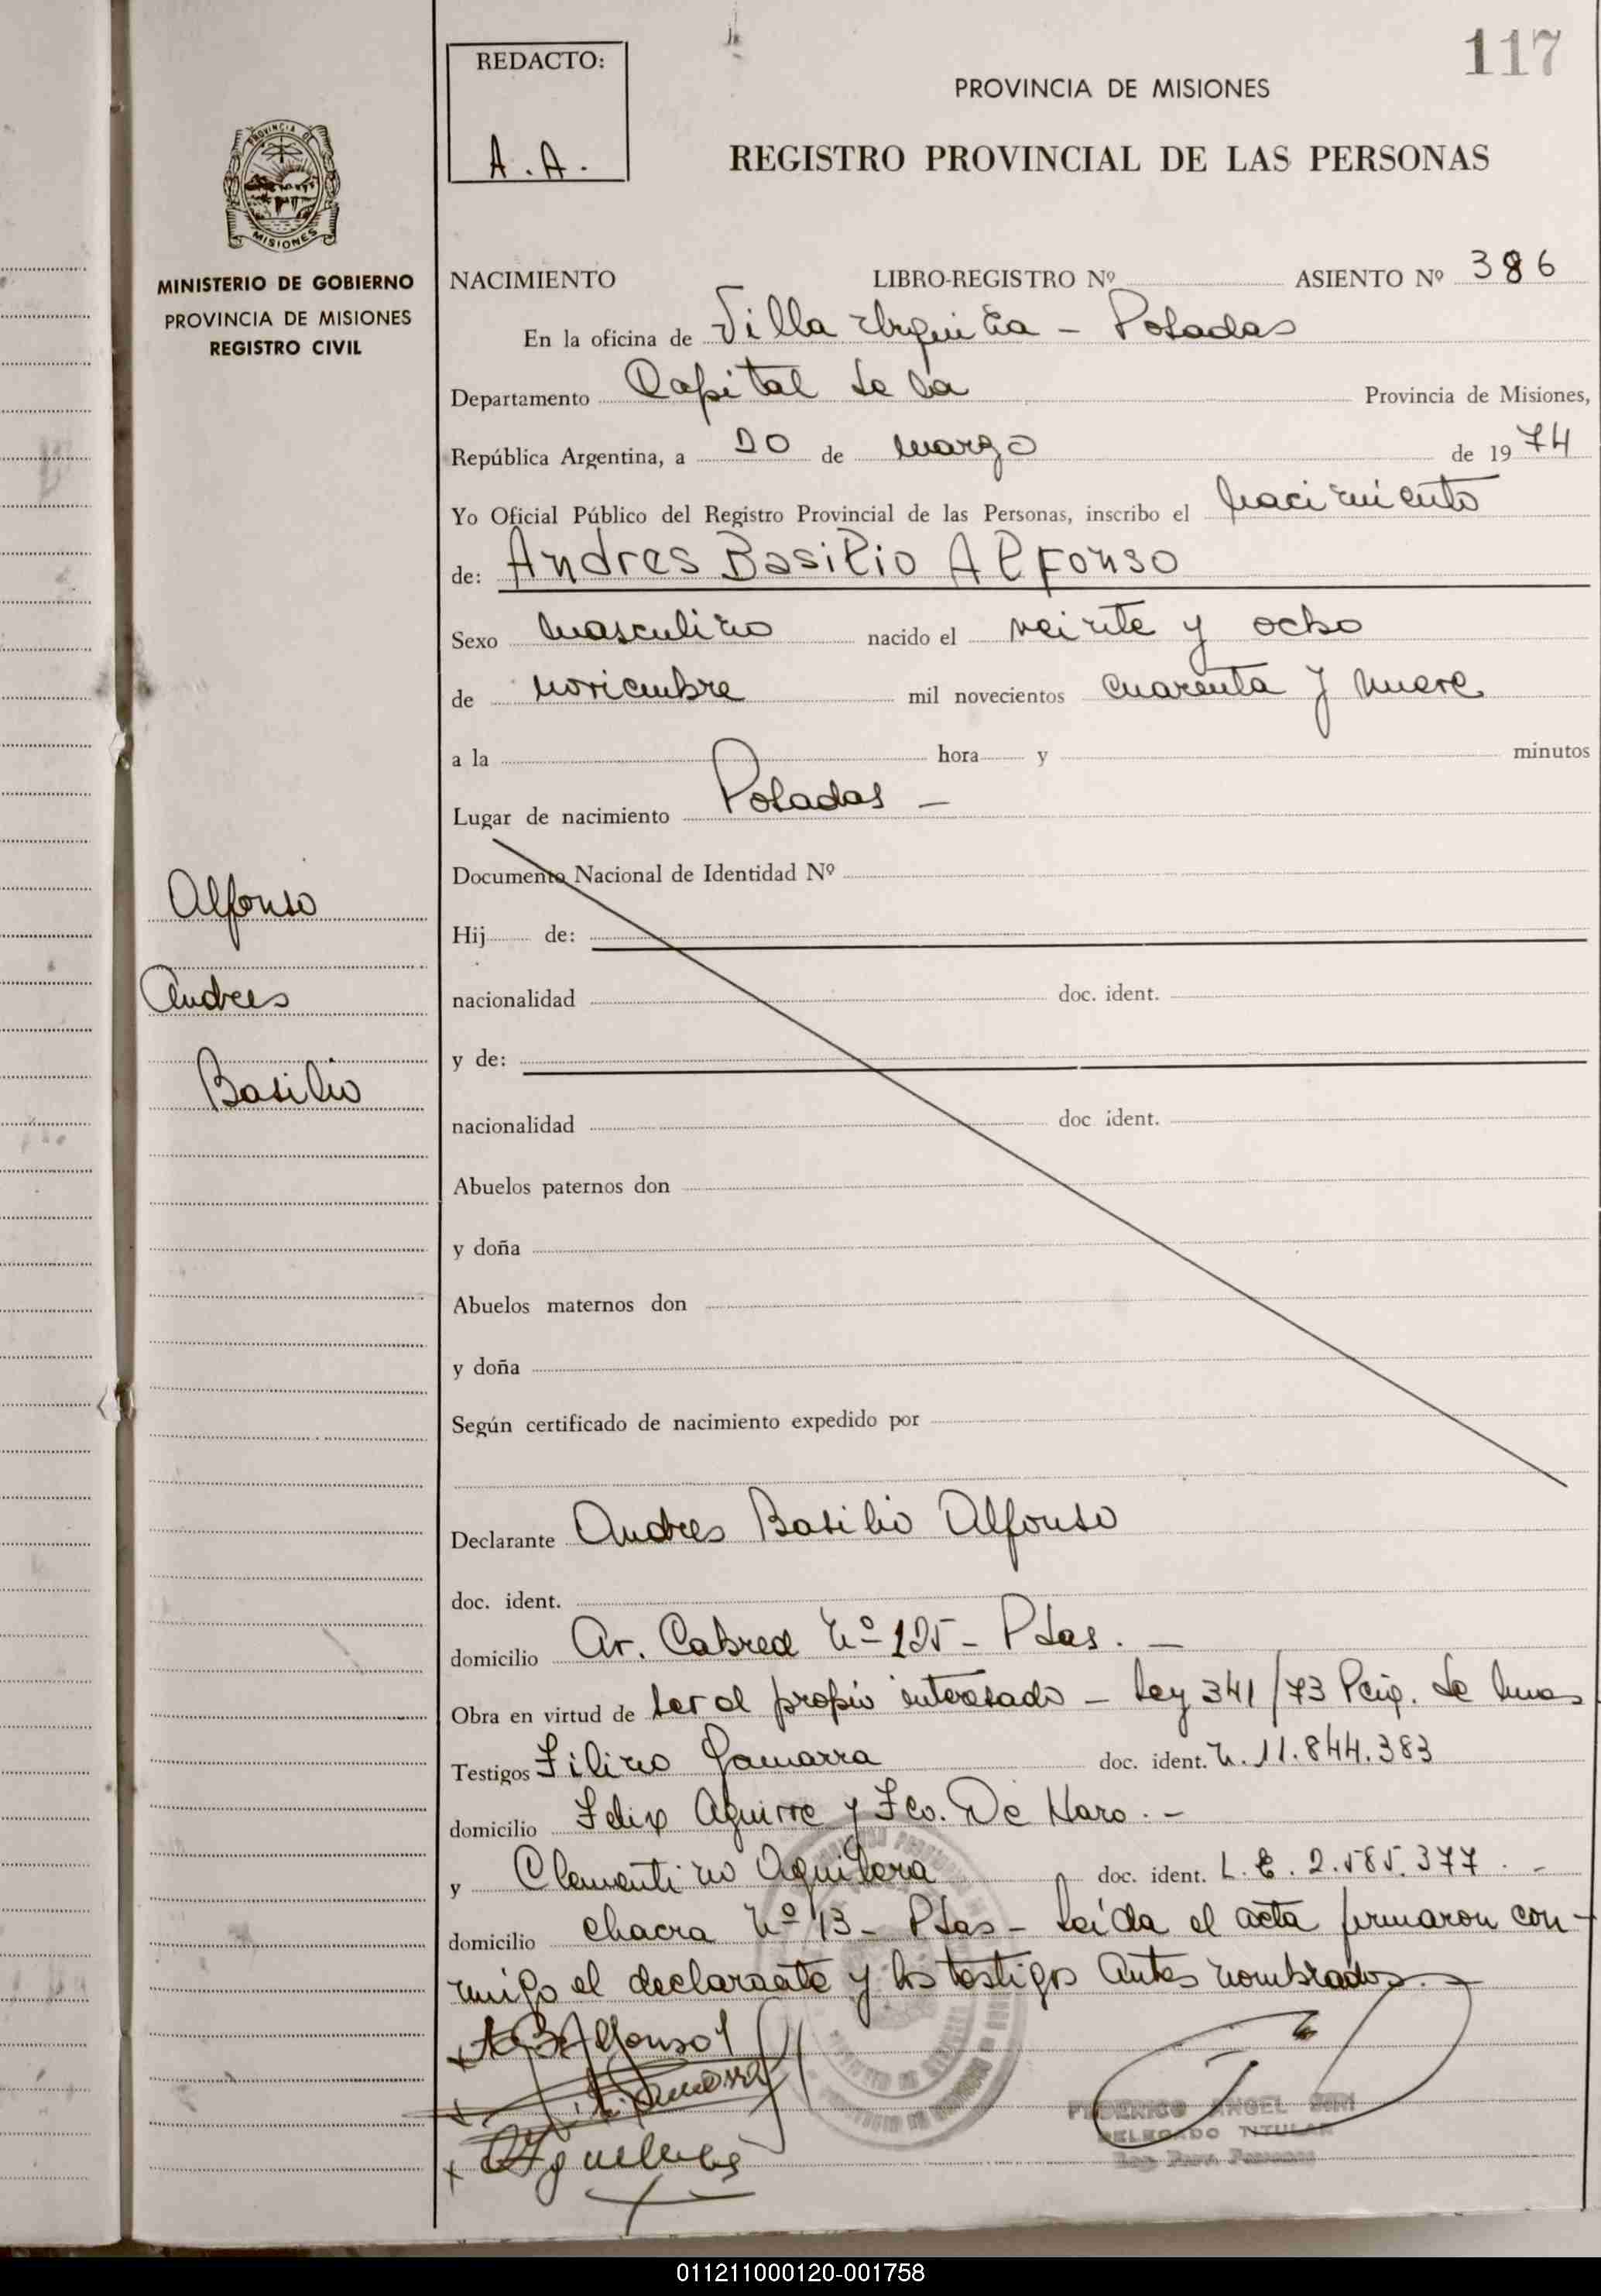 117
REDACTO:
A.A.
PROVINCIA DE MISIONES
REGISTRO PROVINCIAL DE LAS PERSONAS
PROVINCIA DE
MISIONES
MINISTERIO DE GOBIERNO
PROVINCIA DE MISIONES
REGISTRO CIVIL
NACIMIENTO LIBRO-REGISTRO Nº ASIENTO Nº 386
En la oficina de Villa Urquiza - Posadas
Departamento Capital de la Provincia de Misiones,
República Argentina, a 20 de marzo de 1974
Yo Oficial Público del Registro Provincial de las Personas, inscribo el nacimiento
de: Andres Basilio Alfonso
Sexo masculino nacido el veinte y ocho
de noviembre mil novecientos cuarenta y nueve
a la hora y minutos
Lugar de nacimiento Posadas -
Documento Nacional de Identidad Nº
Hij de:
nacionalidad doc. ident.
y de:
nacionalidad doc ident.
Abuelos paternos don
y doña
Abuelos maternos don
y doña
Según certificado de nacimiento expedido por
Alfonso
Andres
Basilio
Declarante Andres Basilio Alfonso
doc. ident.
domicilio Av. Cabred Nº 125 - Pdas. -
Obra en virtud de ser el propio interesado - Ley 341/73 de
Testigos Filino Gamarra doc. ident. N. 11.844.383
domicilio Felix Aguirre y Fco. De Haro. -
y Clementino Aguilera doc. ident. L.E. 2.585.377. -
domicilio chacra Nº 13 - Pdas - Leída el acta firmaron con-
migo el declarante y los testigos antes nombrados. -
A B Alfonso
FEDERICO ANGEL
DELEGADO TITULAR
011211000120-001758